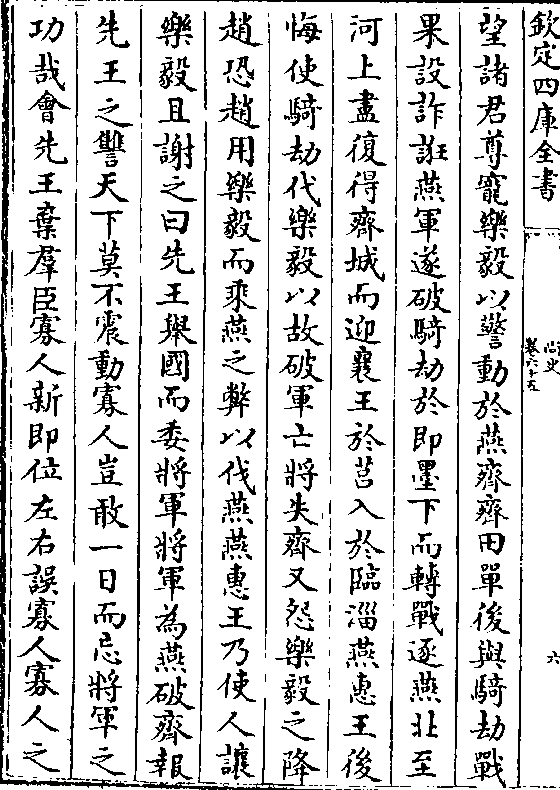 欽定四庫全書
尚史
卷六十五
六
望諸君尊寵樂毅以警動於燕齊齊田單後與騎劫戰
果設詐誑燕軍遂破騎劫於即墨下而轉戰逐燕北至
河上盡復得齊城而迎襄王於莒入於臨淄燕惠王後
悔使騎劫代樂毅以故破軍亡將失齊又怨樂毅之降
趙恐趙用樂毅而乘燕之弊以伐燕燕惠王乃使人讓
樂毅且謝之曰先王舉國而委將軍將軍為燕破齊報
先王之讐天下莫不震動寡人豈敢一日而忘將軍之
功哉會先王棄羣臣寡人新即位左右誤寡人寡人之